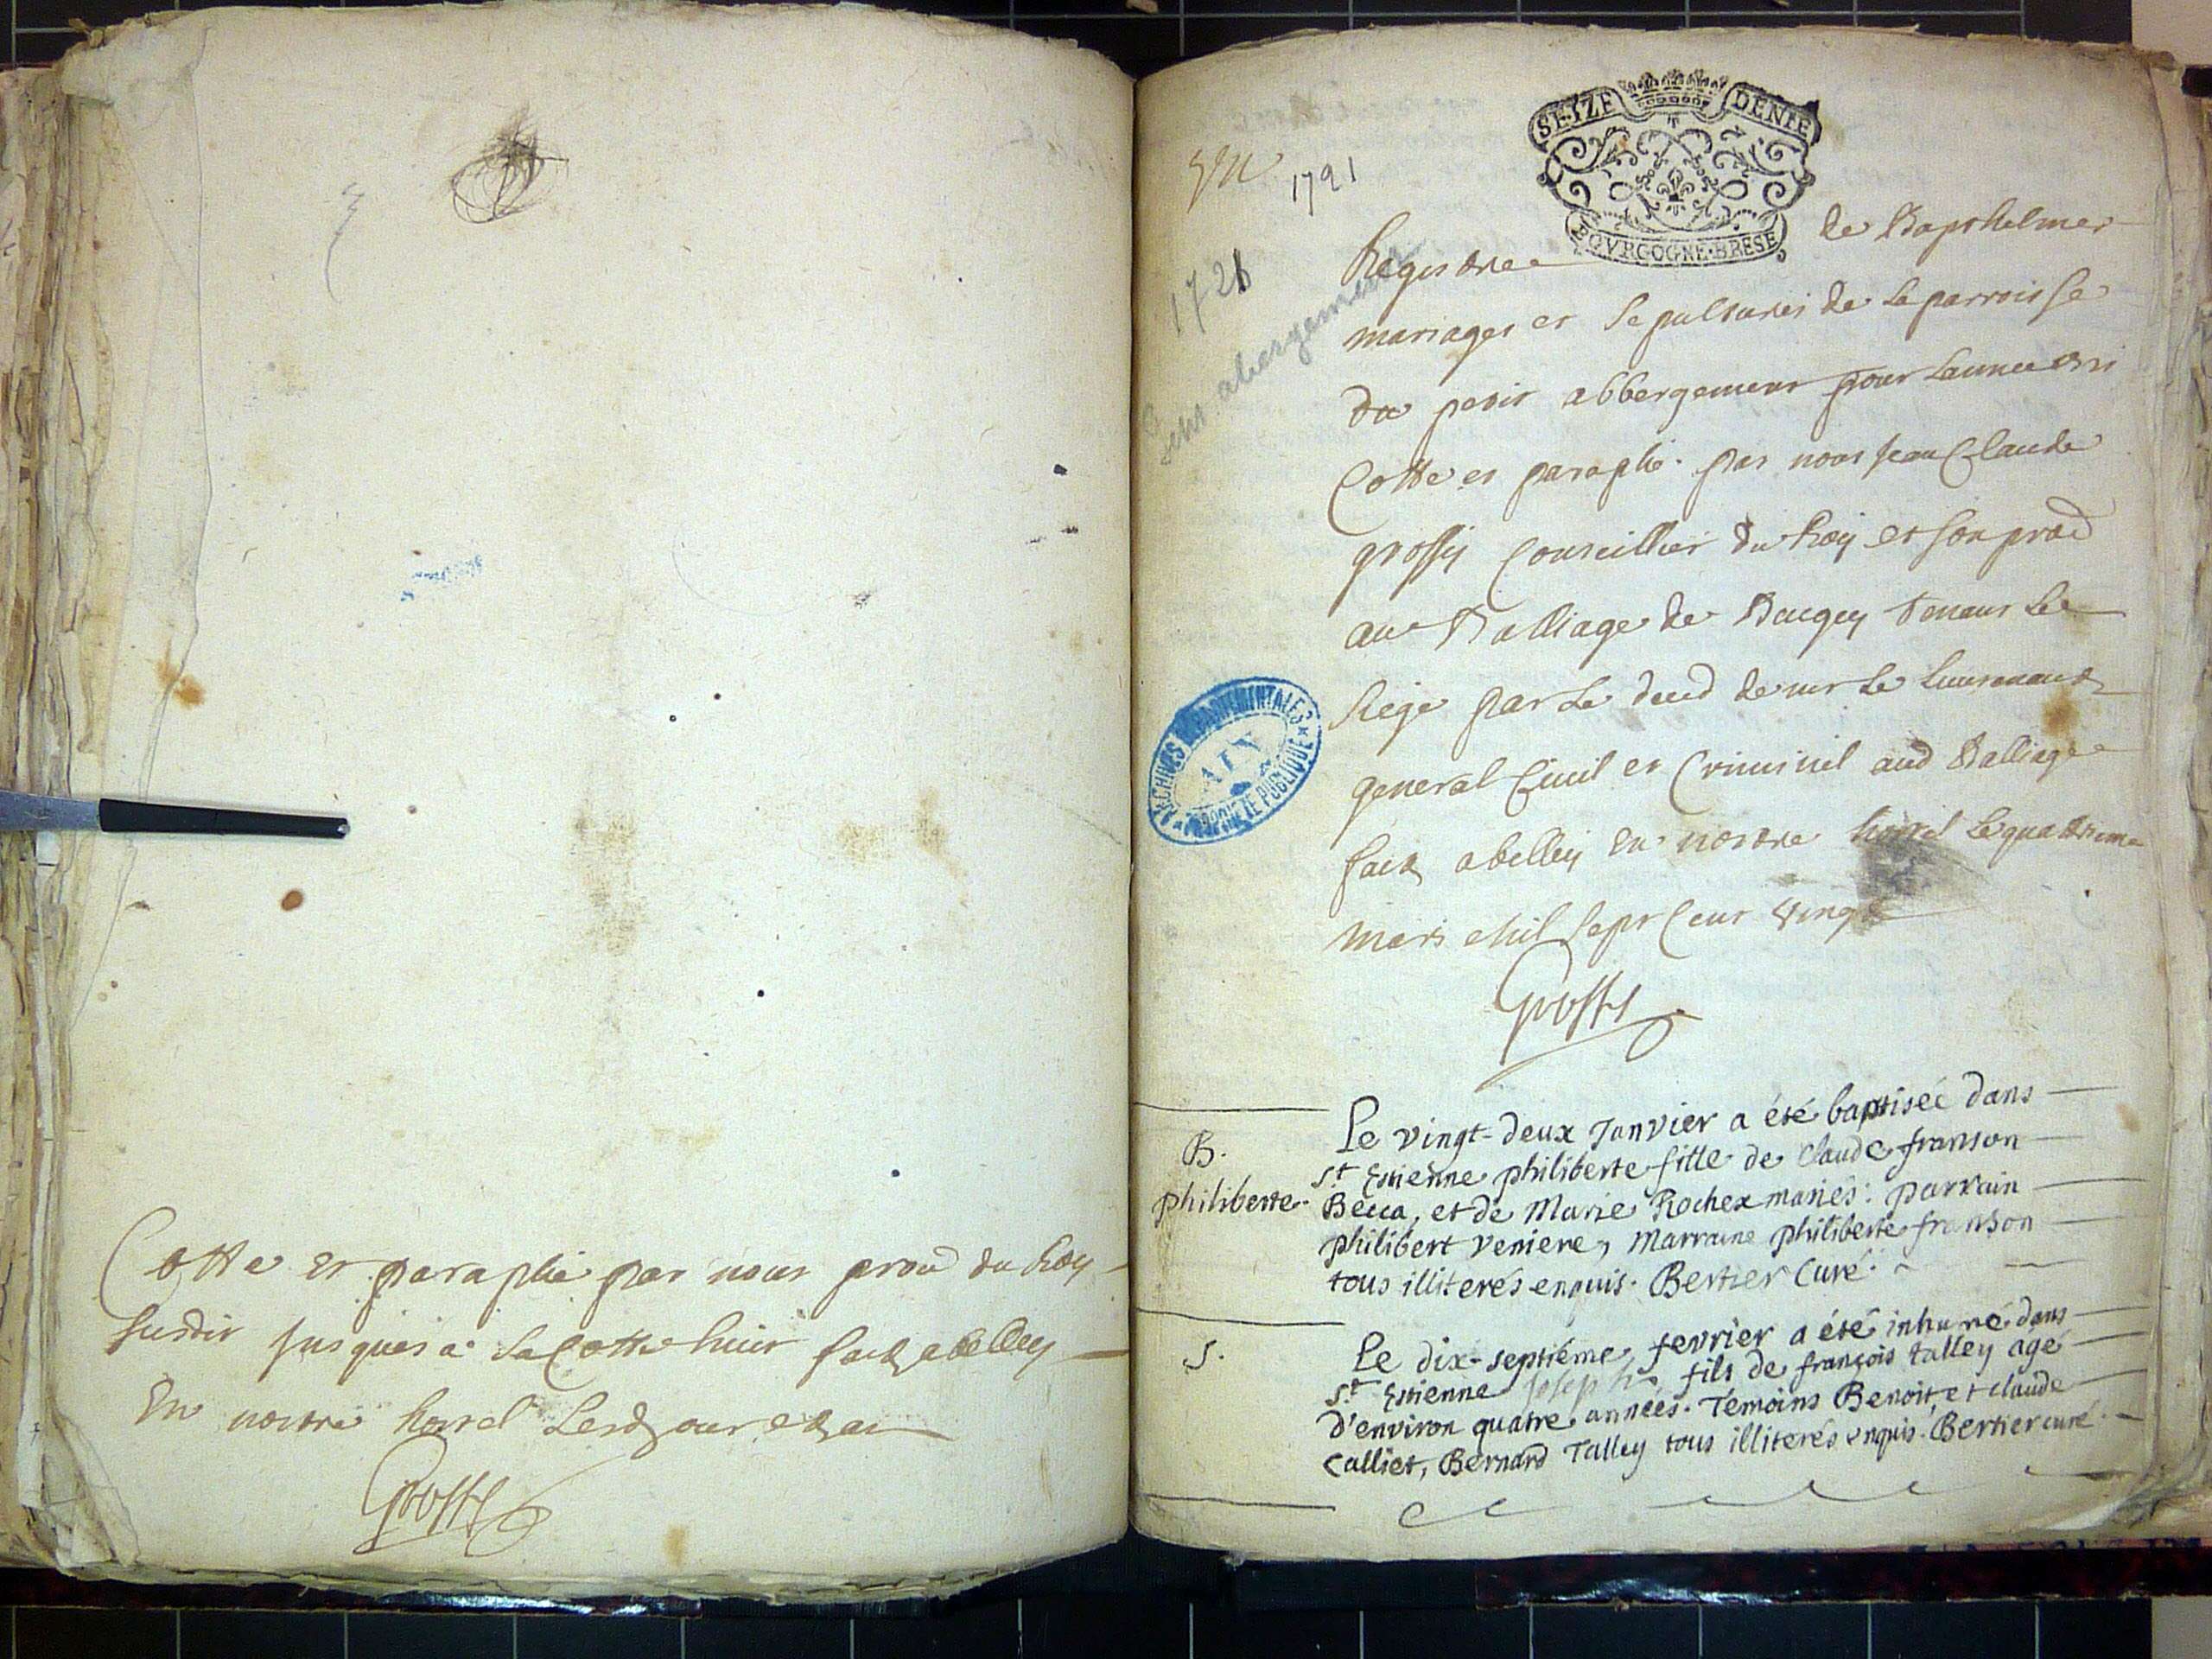 Cotte et paraphé par nous procd du Roy
susdit jusques a la Cotte huit fait a belley
En nostre hostel Lesd jour et an
Grossy
SEIZE DENIE
BOVRGOGNE·BRESE
1721
1721
Petit abergement
Registre de Baptesmes
mariages et Sepultures de la parroisse
du petit abbergement pour Lannee
Cotte et paraphé par nous Jean Claude
grossy Conseillier du Roy et son procd
au Balliage de Baugey tenant Le
siege par Le de mr Le Lieutenant
general Civil et Criminel aud Balliage
fait a belley En nostre hostel Le quatrieme
mars Mil sept Cent vingt
Grossy
ARCHIVES DEPARTEMENTALES
AIN
PROPRIETE PUBLIQUE
B.
philiberte.
Le vingt-deux Janvier a été baptisée dans
St Estienne philiberte fille de Claude franson
Becca, et de Marie Rochex mariés: parrain
philibert Veniere, Marraine philiberte franson
tous illiterés enquis. Bertier Curé.
S.
Le dix-septiéme fevrier a été inhumé dans
St Estienne Joseph fils de françois talley agé
d'environ quatre années. Témoins Benoit, et claude
Calliet, Bernard Talley tous illiterés enquis. Bertier curé.